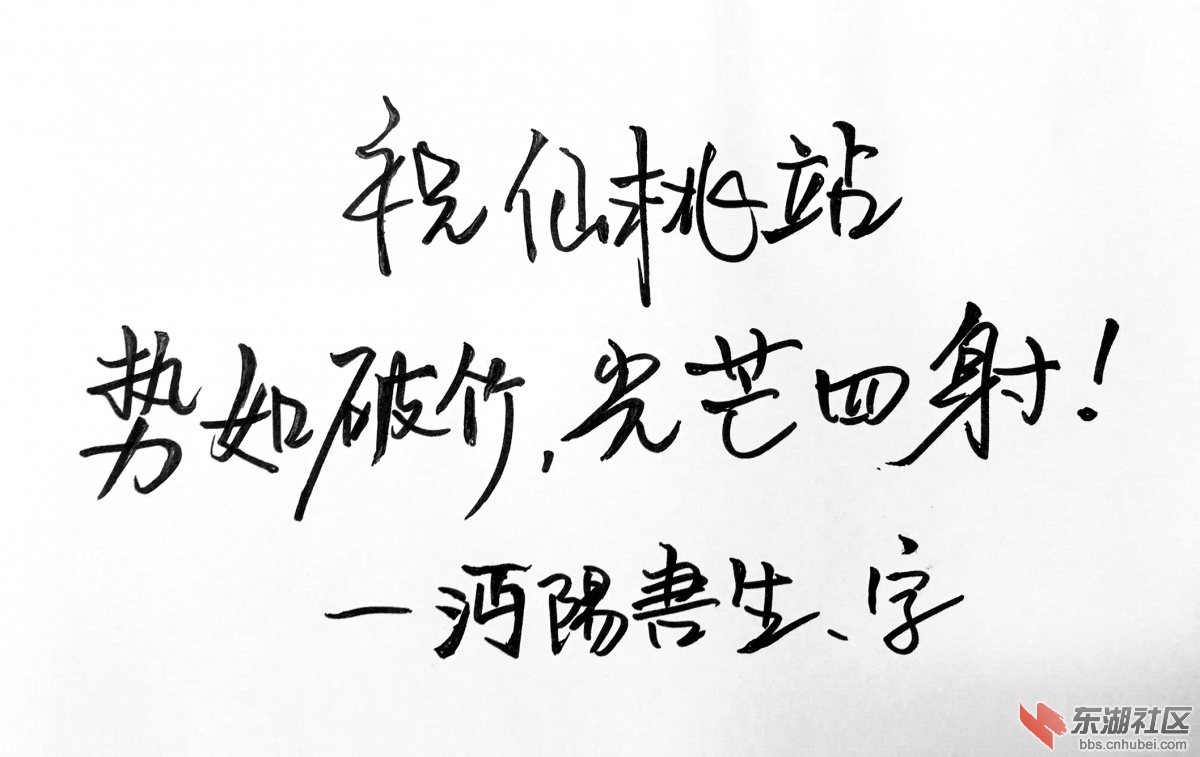 祝仙桃站
势如破竹,光芒四射!
一沔陽書生、字
东湖社区
bbs.cnhubei.com